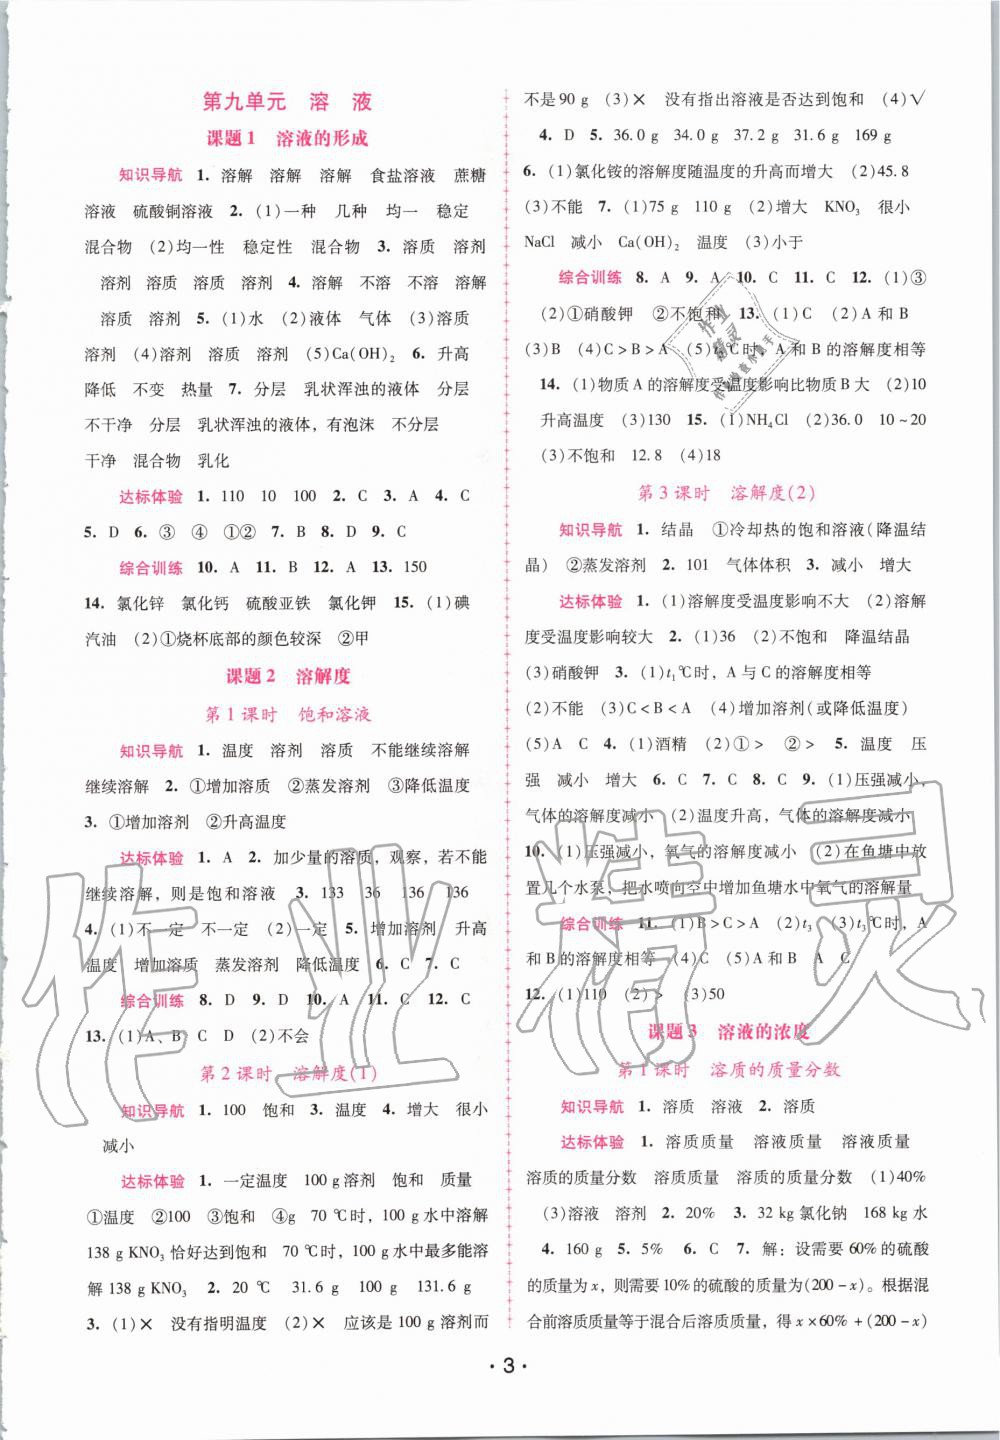 第九单元 溶 液
课题1 溶液的形成
知识导航 1. 溶解 溶解 溶解 食盐溶液 蔗糖
溶液 硫酸铜溶液 2. (1)一种 几种 均一 稳定
混合物 (2)均一性 稳定性 混合物 3. 溶质 溶剂
溶剂 溶质 溶质 溶剂 4. 溶解 不溶 不溶 溶解
溶质 溶剂 5. (1)水 (2)液体 气体 (3)溶质
溶剂 (4)溶剂 溶质 溶剂 (5)Ca(OH)₂ 6. 升高
降低 不变 热量 7. 分层 乳状浑浊的液体 分层
不干净 分层 乳状浑浊的液体,有泡沫 不分层
干净 混合物 乳化
达标体验 1. 110 10 100 2. C 3. A 4. C
5. D 6. ③ ④ ①② 7. B 8. D 9. C
综合训练 10. A 11. B 12. A 13. 150
14. 氯化锌 氯化钙 硫酸亚铁 氯化钾 15. (1)碘
汽油 (2)①烧杯底部的颜色较深 ②甲
课题2 溶解度
第1课时 饱和溶液
知识导航 1. 温度 溶剂 溶质 不能继续溶解
继续溶解 2. ①增加溶质 ②蒸发溶剂 ③降低温度
3. ①增加溶剂 ②升高温度
达标体验 1. A 2. 加少量的溶质,观察,若不能
继续溶解,则是饱和溶液 3. 133 36 136 136
4. (1)不一定 不一定 (2)一定 5. 增加溶剂 升高
温度 增加溶质 蒸发溶剂 降低温度 6. C 7. C
综合训练 8. D 9. D 10. A 11. C 12. C
13. (1)A、B C D (2)不会
第2课时 溶解度(1)
知识导航 1. 100 饱和 3. 温度 4. 增大 很小
减小
达标体验 1. 一定温度 100 g溶剂 饱和 质量
①温度 ②100 ③饱和 ④g 70 ℃时,100 g水中溶解
138 g KNO₃恰好达到饱和 70 ℃时,100 g水中最多能溶
解138 g KNO₃ 2. 20 ℃ 31.6 g 100 g 131.6 g
3. (1)× 没有指明温度 (2)× 应该是100 g溶剂而
不是90 g (3)× 没有指出溶液是否达到饱和 (4)√
4. D 5. 36.0 g 34.0 g 37.2 g 31.6 g 169 g
6. (1)氯化铵的溶解度随温度的升高而增大 (2)45.8
(3)不能 7. (1)75 g 110 g (2)增大 KNO₃ 很小
NaCl 减小 Ca(OH)₂ 温度 (3)小于
综合训练 8. A 9. A 10. C 11. C 12. (1)③
(2)①硝酸钾 ②不饱和 13. (1)C (2)A和B
(3)B (4)C>B>A (5) ℃时,A和B的溶解度相等
14. (1)物质A的溶解度受温度影响比物质B大 (2)10
升高温度 (3)130 15. (1)NH₄Cl (2)36.0 10~20
(3)不饱和 12.8 (4)18
第3课时 溶解度(2)
知识导航 1. 结晶 ①冷却热的饱和溶液(降温结
晶) ②蒸发溶剂 2. 101 气体体积 3. 减小 增大
达标体验 1. (1)溶解度受温度影响不大 (2)溶解
度受温度影响较大 2. (1)36 (2)不饱和 降温结晶
(3)硝酸钾 3. (1)t₁℃时,A与C的溶解度相等
(2)不能 (3)C<B<A (4)增加溶剂(或降低温度)
(5)A C 4. (1)酒精 (2)①> ②> 5. 温度 压
强 减小 增大 6. C 7. C 8. C 9. (1)压强减小,
气体的溶解度减小 (2)温度升高,气体的溶解度减小
10. (1)压强减小,氧气的溶解度减小 (2)在鱼塘中放
置几个水泵,把水喷向空中增加鱼塘水中氧气的溶解量
综合训练 11. (1)B>C>A (2)t₃ (3)t₃℃时,A
和B的溶解度相等 (4)C (5)A和B A C
12. (1)110 (2)> (3)50
课题3 溶液的浓度
第1课时 溶质的质量分数
知识导航 1. 溶质 溶液 2. 溶质
达标体验 1. 溶质质量 溶液质量 溶液质量
溶质的质量分数 溶质质量 溶质的质量分数 (1)40%
(3)溶液 溶剂 2. 20% 3. 32 kg氯化钠 168 kg水
4. 160 g 5. 5% 6. C 7. 解:设需要60%的硫酸
的质量为x,则需要10%的硫酸的质量为(200-x)。根据混
合前溶质质量等于混合后溶质质量,得x×60%+(200-x)
·3·
作业精灵